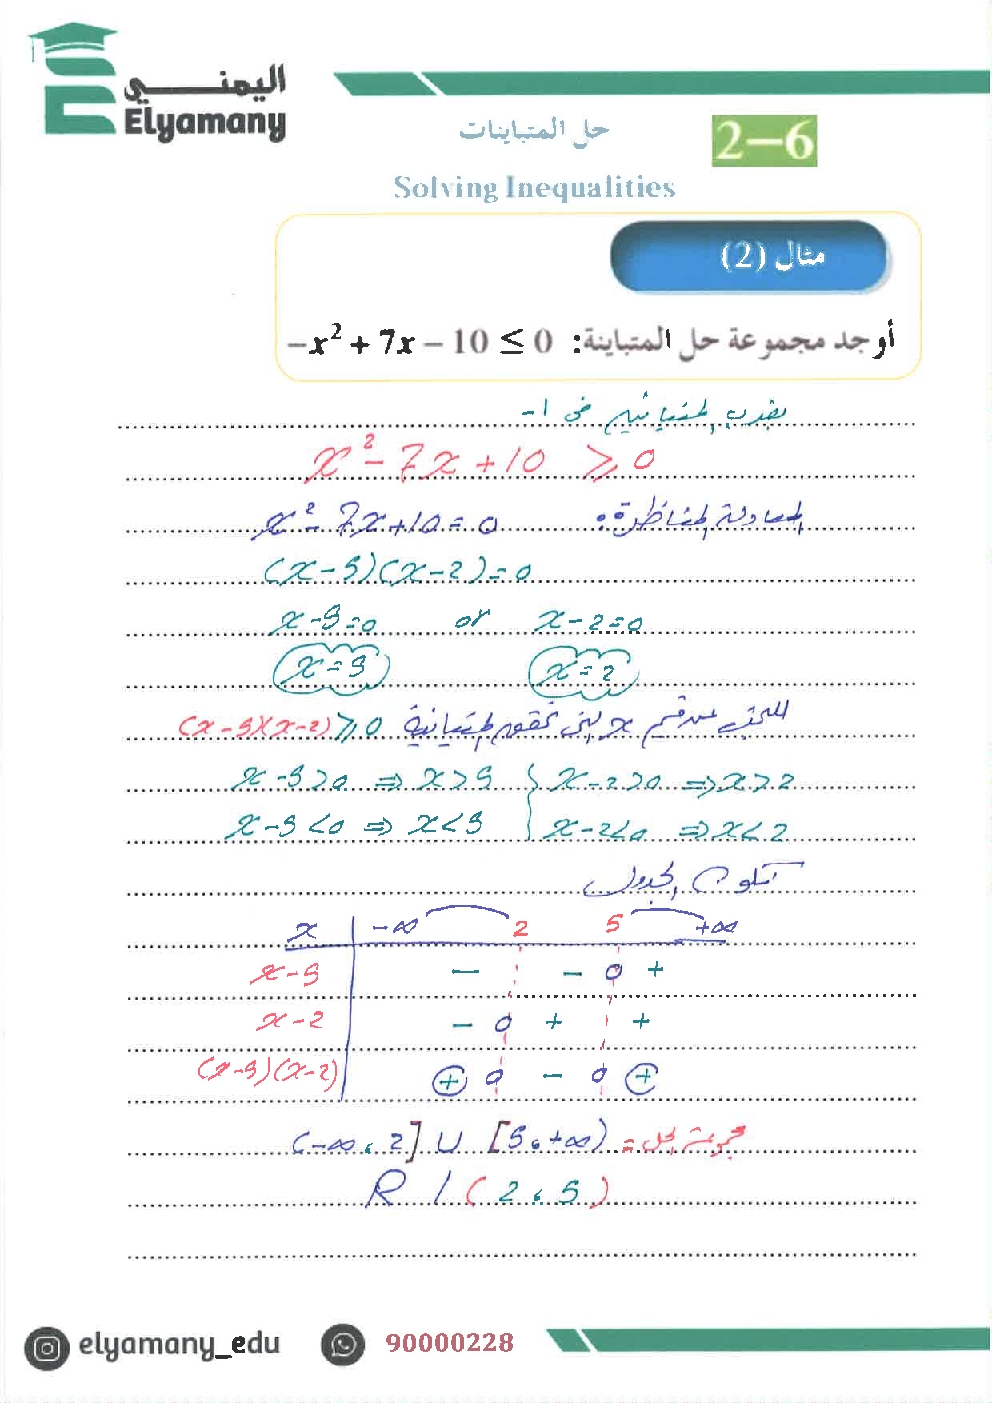 اليمني
Elyamany
2-6
حل المتباينات
Solving Inequalities
مثال (2)
أوجد مجموعة حل المتباينة: -x² + 7x - 10 ≤ 0
بضرب المتباينة في 1-
x² - 7x + 10 ≥ 0
المعادلة المناظرة:
x² - 7x + 10 = 0
(x-5)(x-2) = 0
x-5=0 or x-2=0
x=5 x=2
(x-5)(x-2) ≥ 0
x-5>0 ⇒ x>5 } x-2>0 ⇒ x>2
x-5<0 ⇒ x<5 } x-2<0 ⇒ x<2
الجدول
x -∞ 2 5 +∞
x-5 - - 0 +
x-2 - 0 + +
(x-5)(x-2) + 0 - 0 +
مجموعة الحل = (-∞، 2] ∪ [5، +∞)
R / (2، 5)
elyamany_edu 90000228